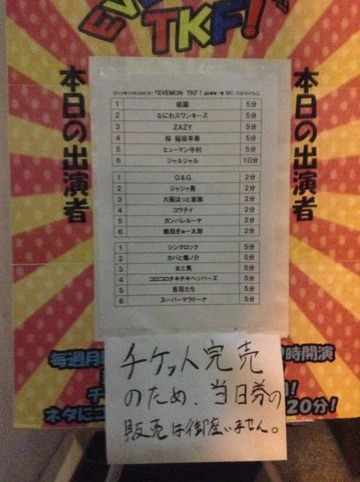 EVEMON
TKF!
本日の出演者
本日の出演者
『EVEMON TKF!
1 祇園 5分
2 なにわスワンキーズ 5分
3 ZAZY 5分
4 桜 稲垣早希 5分
5 ヒューマン中村 5分
6 ジャルジャル 10分
1 G&G 2分
2 ジャジャ風 2分
3 大阪はっと家族 2分
4 コウテイ 2分
5 ガンバレルーヤ 2分
6 鶴田ぎゅー太郎 2分
1 シンクロック 5分
2 カバと爆ノ介 5分
3 女と男 5分
4 コロコロチキチキペッパーズ 5分
5 吉田たち 5分
6 スーパーマラドーナ 5分
チケット完売
のため、当日券の
販売は御座いません。
毎週月
時開演
チ
ネタにコ
20分!